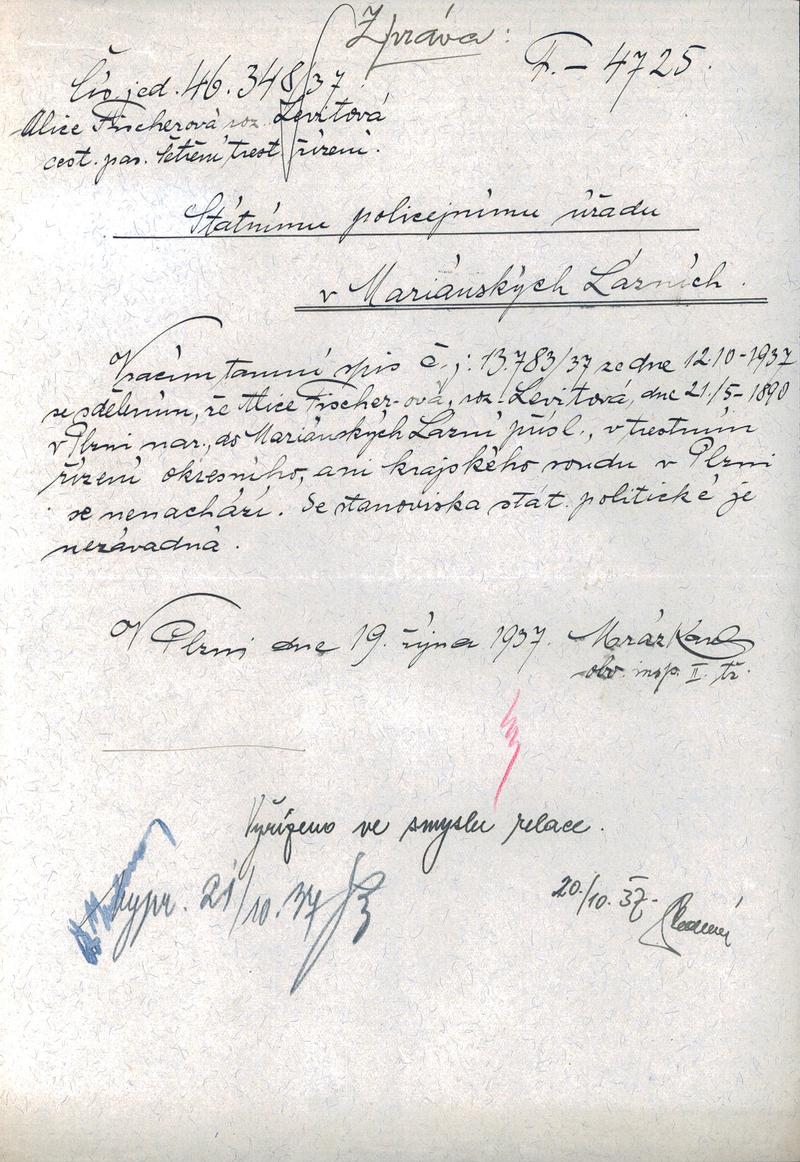 Zpráva:
F. - 4725.
Čís. jed. 46.348/37
Alice Fischerová roz. Levitová
cest. pas. šetření trest. řízení.
Státnímu policejnímu úřadu
v Mariánských Lázních.
Vracím tamní spis č. j: 13.783/37 ze dne 12.10-1937
se sdělením, že Alice Fischer-ová, roz. Levitová, dne 21./5-1890
v Plzni nar., do Mariánských Lázní přísl., v trestním
řízení okresního, ani krajského soudu v Plzni
se nenachází. Se stanoviska stát. politické je
nezávadná.
V Plzni dne 19. října 1937. Mráz Karel
obv. insp. II. tř.
Vyřízeno ve smyslu relace.
20./10. 37.
Vypr. 21/10. 37